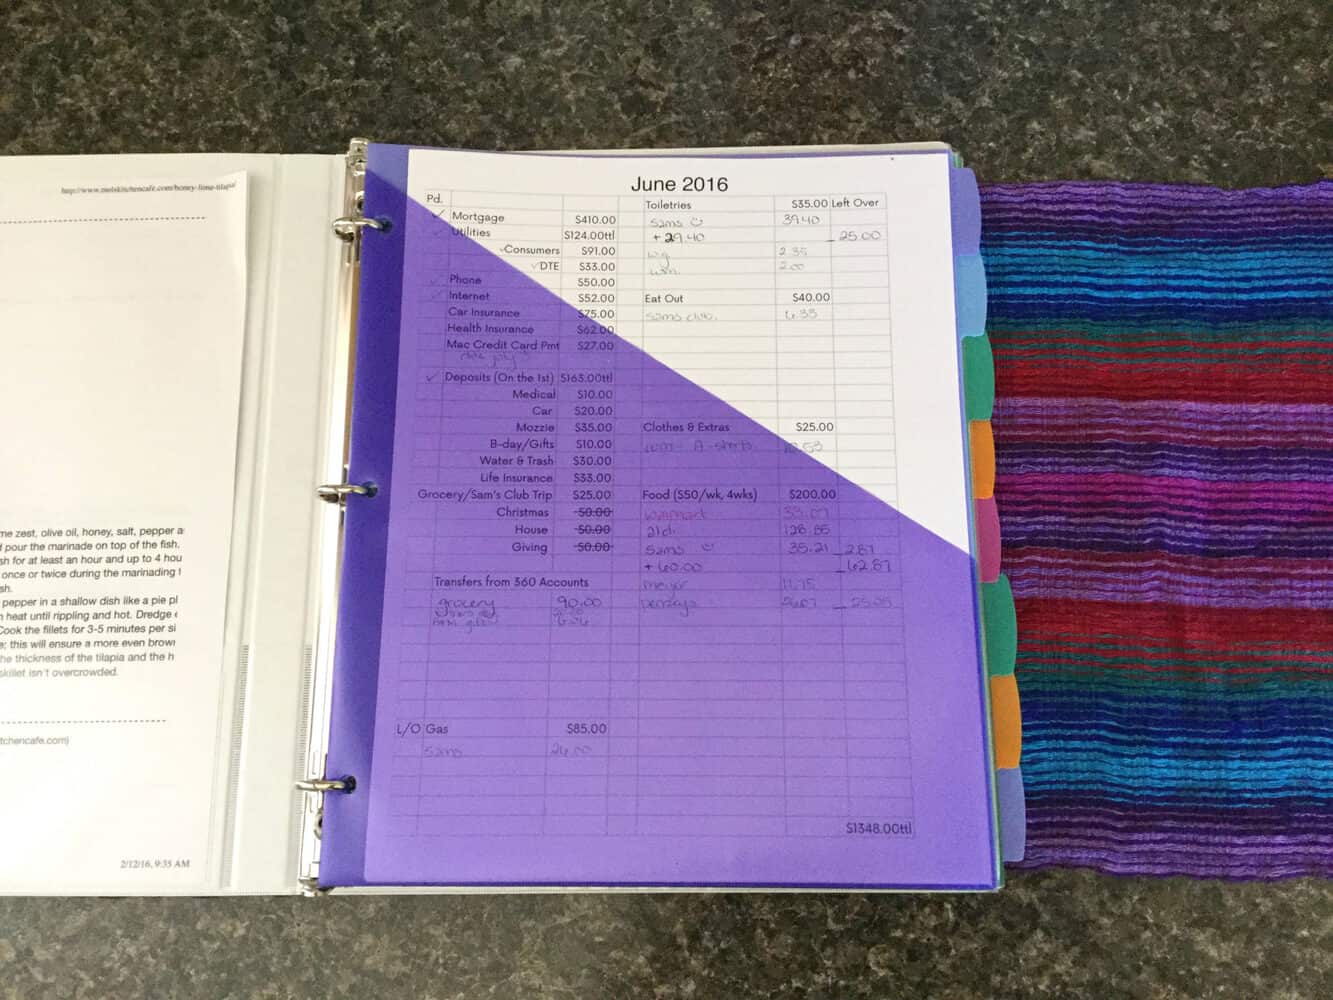 http://www.melskitchencafe.com/honey-lime-tilapia
me zest, olive oil, honey, salt, pepper a
d pour the marinade on top of the fish.
sh for at least an hour and up to 4 hou
once or twice during the marinading t
sh.
pepper in a shallow dish like a pie pl
n heat until rippling and hot. Dredge
Cook the fillets for 3-5 minutes per si
e; this will ensure a more even brow
he thickness of the tilapia and the h
skillet isn't overcrowded.
tchencafe.com)
2/12/16, 9:35 AM
June 2016
Pd.
✓ Mortgage $410.00
✓ Utilities $124.00ttl
✓Consumers $91.00
✓DTE $33.00
✓ Phone $50.00
✓ Internet $52.00
Car Insurance $75.00
Health Insurance $62.00
Mac Credit Card Pmt $27.00
✓ Deposits (On the 1st) $163.00ttl
Medical $10.00
Car $20.00
Mozzie $35.00
B-day/Gifts $10.00
Water & Trash $30.00
Life Insurance $33.00
Grocery/Sam's Club Trip $25.00
Christmas 50.00
House 50.00
Giving 50.00
Transfers from 360 Accounts
grocery 90.00
L/O Gas $85.00
sams 26.00
Toiletries $35.00 Left Over
sams 39.40
+ 29.40 25.00
wg 2.35
wm. 2.00
Eat Out $40.00
sams club. 6.33
Clothes & Extras $25.00
Food ($50/wk, 4wks) $200.00
walmart 33.07
aldi 128.85
sams 35.21 2.87
+ 60.00 62.87
meijer 11.75
$1348.00ttl